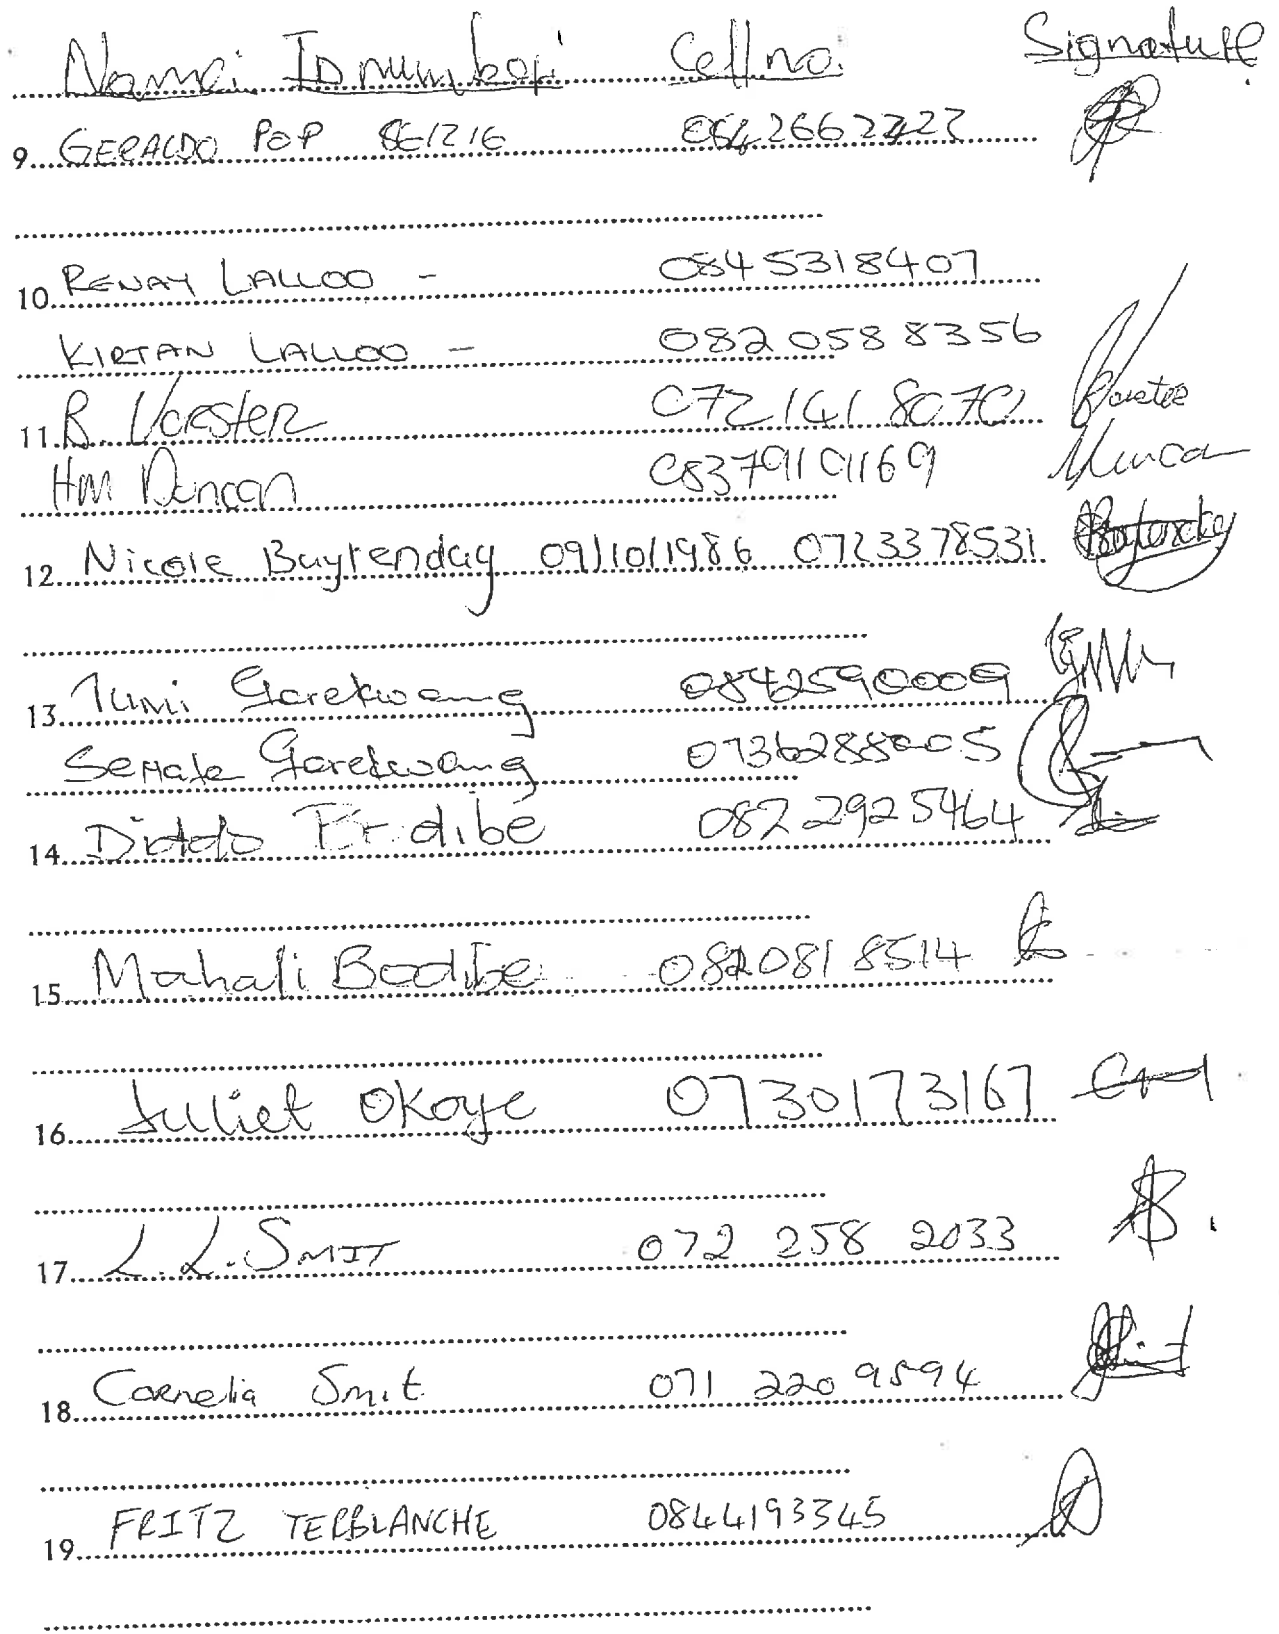 Name: ID number: Cell no: Signature:
9. GERALDO POP 861216
10. RENAY LALLOO - 0845318407
KIRTAN LALLOO - 0820588356
11. R. VORSTER 072 141 8070 Vorster
HM Duncan Duncan
12. Nicole Buytendag 09/10/1986 0723378531
13. Tumi GareKwang 0842590009
Semale GareKwang 0736288005
14. 082 2925464
15. Mahali Bodibe 082081 8514
16. Juliet Okoye 0730173167
17. L.L. SMIT 072 258 2033
18. Cornelia Smit 071 220 9594
19. FRITZ TERBLANCHE 0844193345